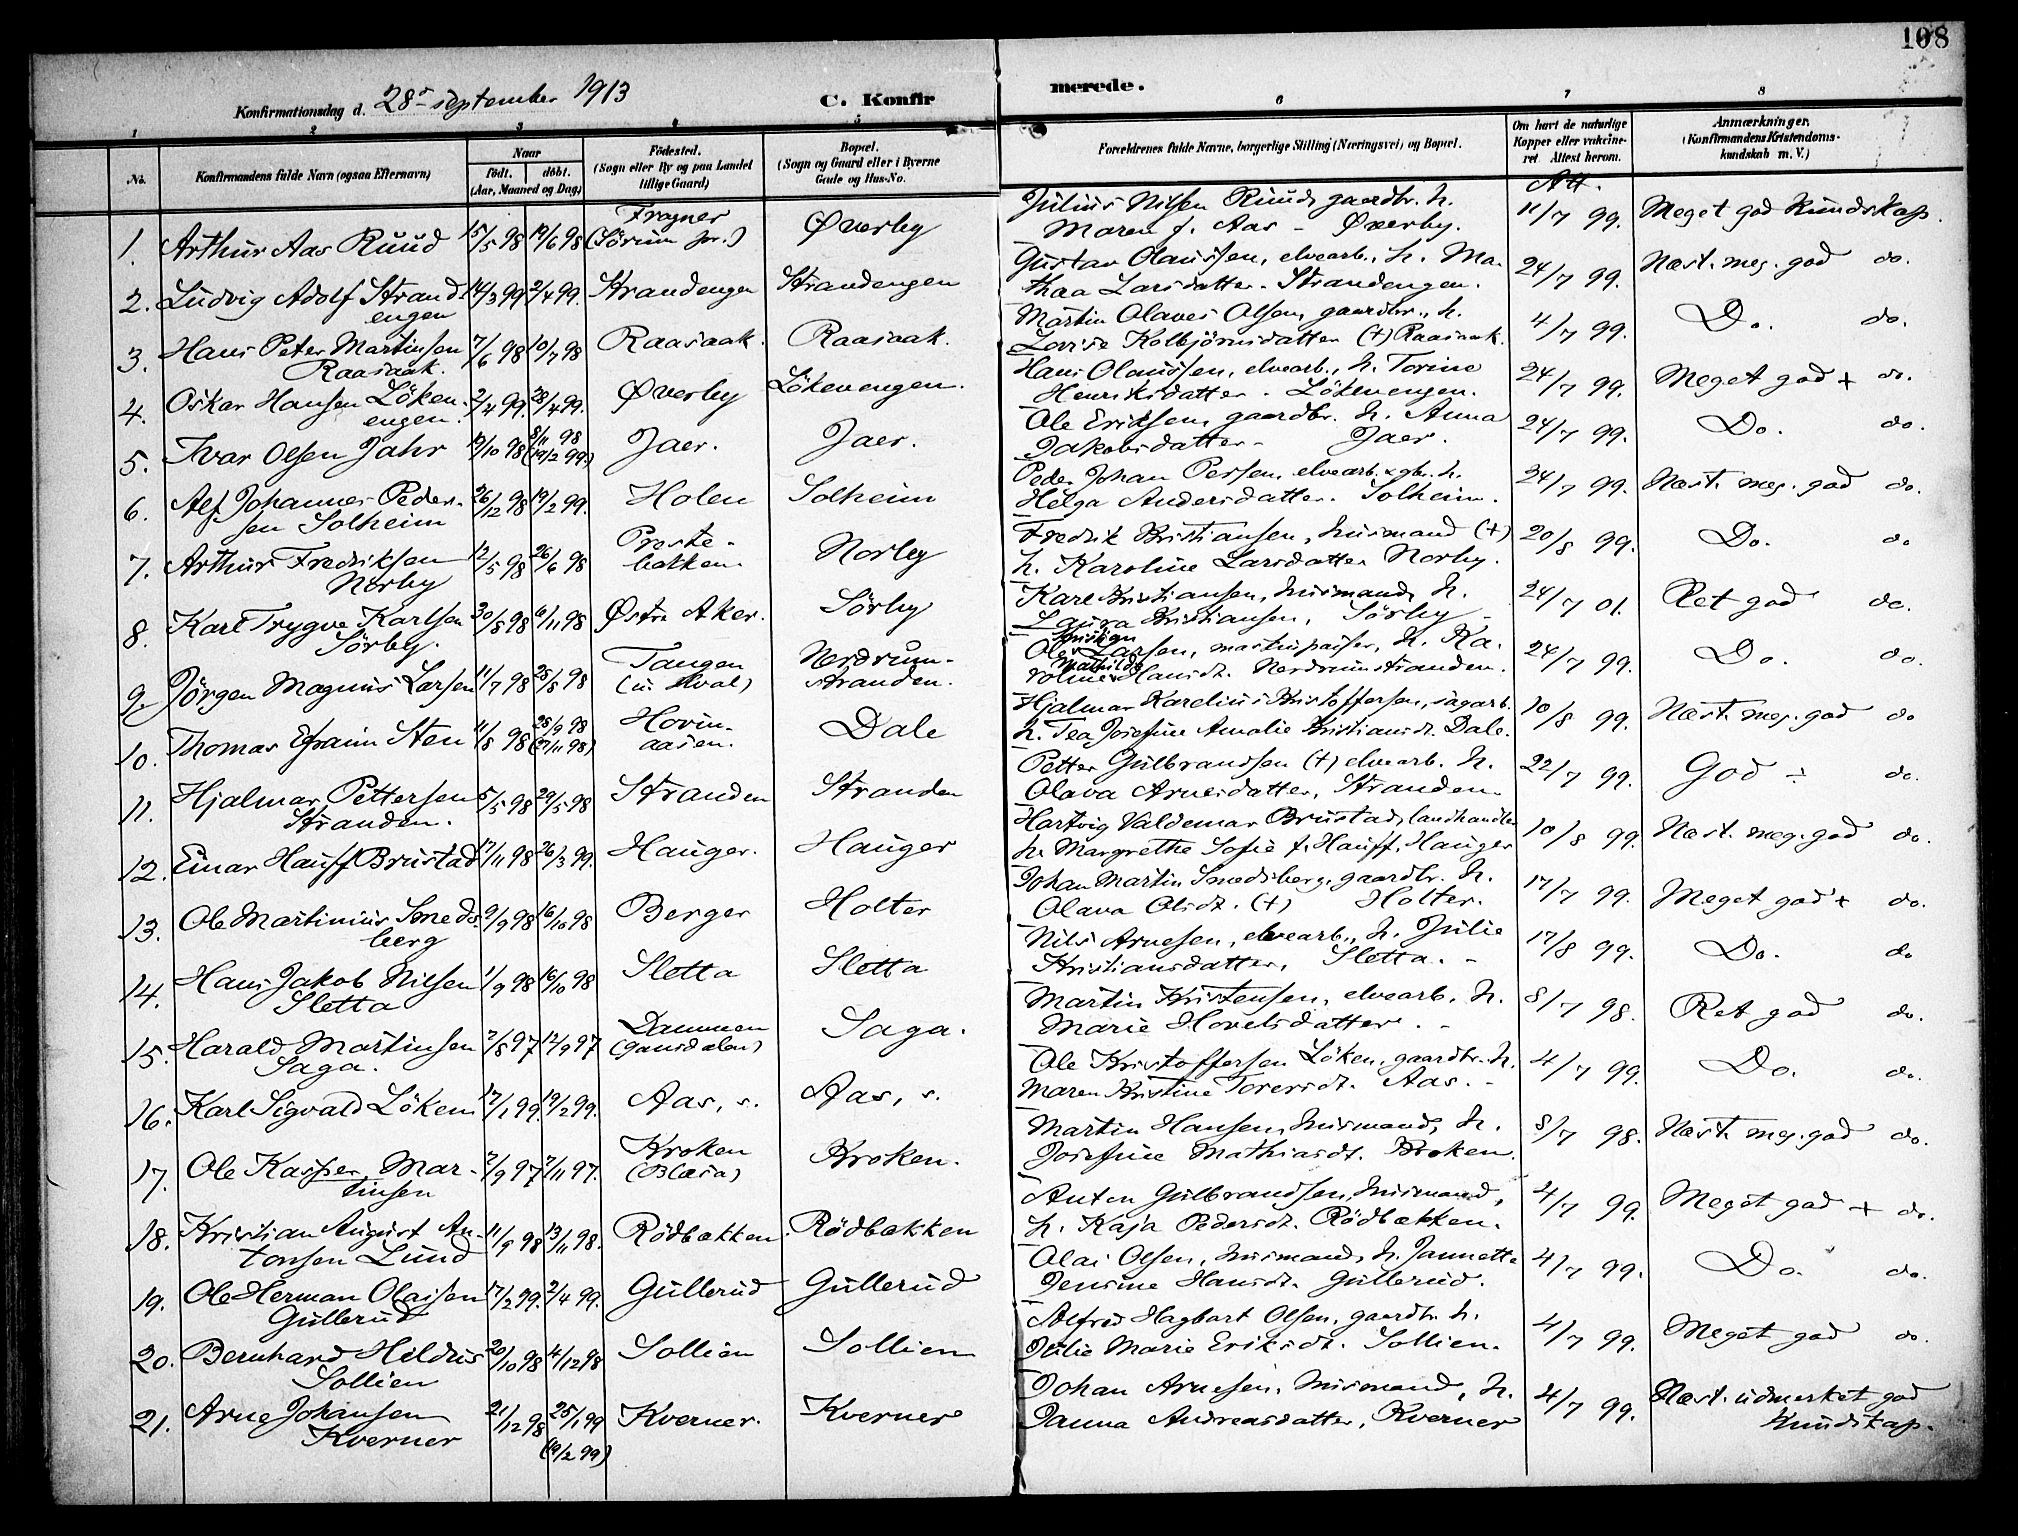 108
Konfirmationsdag d. 28de september 1913 C. Konfirmerede.
1 2 3 4 5 6 7 8
No. Konfirmandens fulde Navn (ogsaa Efternavn) Naar født. døbt. (Aar, Maaned og Dag) Födested. (Sogn eller By og paa Landet tillige Gaard) Bopæl. (Sogn og Gaard eller i Byerne Gade og Hus-No. Forældrenes fulde Navne, borgerlige Stilling (Næringsvei) og Bopæl. Om havt de naturlige Kopper eller vakcineret. Attest herom. Anmærkninger. (Konfirmandens Kristendomskundskab m. V.)
Att.
1. Arthur Aas Ruud 15/5 98 19/6 98 Frogner (Sörum pr.) Øverby Julius Nilsen Ruud, gaardbr. h. 11/7 99. Meget god kundskap.
Maren f. Aas - Øverby.
2. Ludvig Adolf Strand- 14/3 99 2/4 99. Strandengen Strandengen Gustav Olaussen, elvearb., h. Ma- 24/7 99. Næst. meg. god do.
engen thea Larsdatter - Strandengen.
3. Hans Peter Martinsen 7/6 98 10/7 98 Raasaak. Raasaak. Martin Olaves Olsen, gaardbr., h. 4/7 99. Do. do.
Raasaak. Lovise Kolbjörnsdatter (+) Raasaak.
4. Oskar Hansen Löken- 2/4 99. 28/4 99. Øverby Lökenengen. Hans Olaussen, elvearb., h. Torine 24/7 99. Meget god + do.
engen. Henriksdatter - Lökenengen.
5. Ivar Olsen Jahr 19/10 98 8/11 98 (19/2 99.) Jaer. Jaer. Ole Eriksen, gaardbr. h. Anna 24/7 99. Do. do.
Jakobsdatter - Jaer.
6. Alf Johannes Peder- 26/12 98 19/2 99. Holen Solheim Peder Johan Persen, elvearb. & gb. h. 24/7 99. Næst. meg. god do.
sen Solheim Helga Andersdatter. Solheim.
7. Arthur Fredriksen 12/5 98 26/6 98 Prestebakken Norby Fredrik Kristiansen, husmand (+) 20/8 99. Do. do
Norby h. Karoline Larsdatter Norby.
8. Karl Trygve Karlsen 30/8 98 6/11 98 Østre Aker. Sörby Karl Kristiansen, husmand, h. 24/7 01. Ret god do.
Sörby. Laura Kristiansen, Sörby -
9. Jörgen Magnus Larsen 11/7 98 28/8 98 Tangen (u. Hval) Nerdrumstranden. Ole Kristian Larsen, maskinpasser, h. Ka- 24/7 99. Do. do.
roline Mathilde Hansdt. Nerdrumstranden.
10. Thomas Efraim Sten 11/8 98 28/9 98 (27/11 98) Hovinaasen. Dale Hjalmar Karelius Kristoffersen, sagarb. 10/8 99. Næst. meg. god do
h. Tea Josefine Amalie Kristiansdt. Dale.
11. Hjalmar Pettersen 5/5 98 29/5 98 Stranden Stranden Petter Gulbrandsen (+) elvearb. h. 22/7 99. God ÷ do.
Stranden. Olava Arnesdatter, Stranden.
12. Einar Hauff Brustad 17/11 98 26/3 99. Hauger. Hauger Hartvig Valdemar Brustad, landhandler 10/8 99. Næst. meg. god do.
h. Margrethe Sofie f. Hauff. Hauger
13. Ole Martinius Smeds- 9/9 98 16/10 98 Berger Holter Johan Martin Smedsberg, gaardbr. h. 17/7 99. Meget god + do.
berg Olava Olsdt. (+) Holter.
14. Hans Jakob Nilsen 1/9 98 16/10 98 Sletta Sletta Nils Arnesen, elvearb., h. Julie 17/8 99. Do. do
Sletta Kristiansdatter, Sletta. -
15. Harald Martinsen 2/8 97 12/9 97 Dammen (Gansdalen) Saga. Martin Kristensen, elvearb., h. 8/7 98. Ret god do.
Saga. Marie Hovelsdatter. -
16. Karl Sigvald Löken 17/1 99. 19/2 99. Aas, s. Aas, s. Ole Kristoffersen Löken, gaardbr. h. 4/7 99. Do. do.
Maren Kristine Toresdt. Aas. -
17. Ole Kasper Mar- 2/9 97 7/11 97. Kroken (Blæsa) Kroken. Martin Hansen, husmand, h. 8/7 98. Næst. meg. god do.
tinsen Josefine Mathiasdt. Kroken.
18. Kristian August An- 11/9 98 13/11 98. Rödbakken Rödbakken Anton Gulbrandsen, husmand, 4/7 99. Meget god + do.
tonsen Lund h. Kaja Pedersdt. Rödbakken.
19. Ole Herman Olaisen 17/2 99. 2/4 99. Gullerud Gullerud Olai Olsen, husmand, h. Jannette 4/7 99. Do. do.
Gullerud Jensine Hansdt. Gullerud.
20. Bernhard Hildus 20/10 98 4/12 98 Sollien Sollien Alfred Hagbart Olsen, gaardbr. h. 4/7 99. Meget god do.
Sollien Julie Marie Eriksdt. Sollien.
21. Arne Johansen 21/12 98 25/1 99 (19/2 99) Kverner. Kverner Johan Arnesen, husmand, h. 4/7 99. Næst. udmerket god
Kverner Janna Andreasdatter, Kverner kundskap.